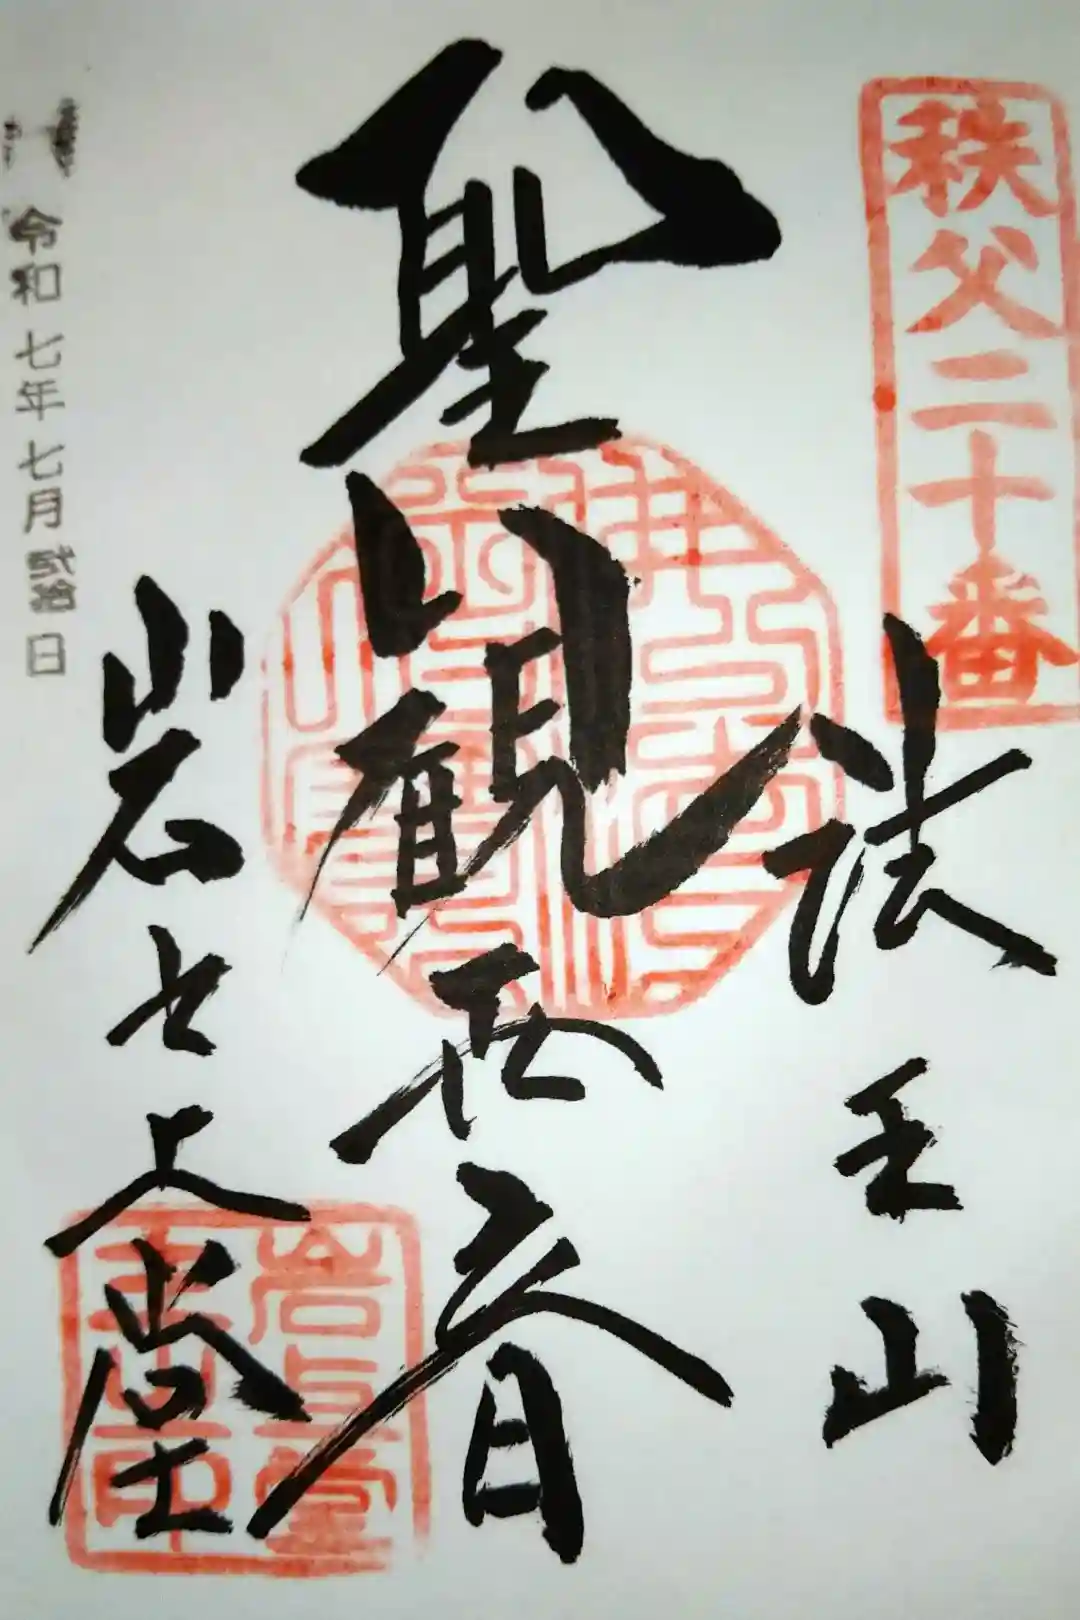 秩父二十番
法王山
聖観世音
岩之上堂
岩上堂
令和七年七月弐拾日